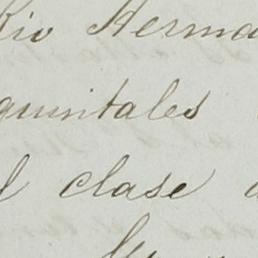 Rio Herma
quintales
l clase